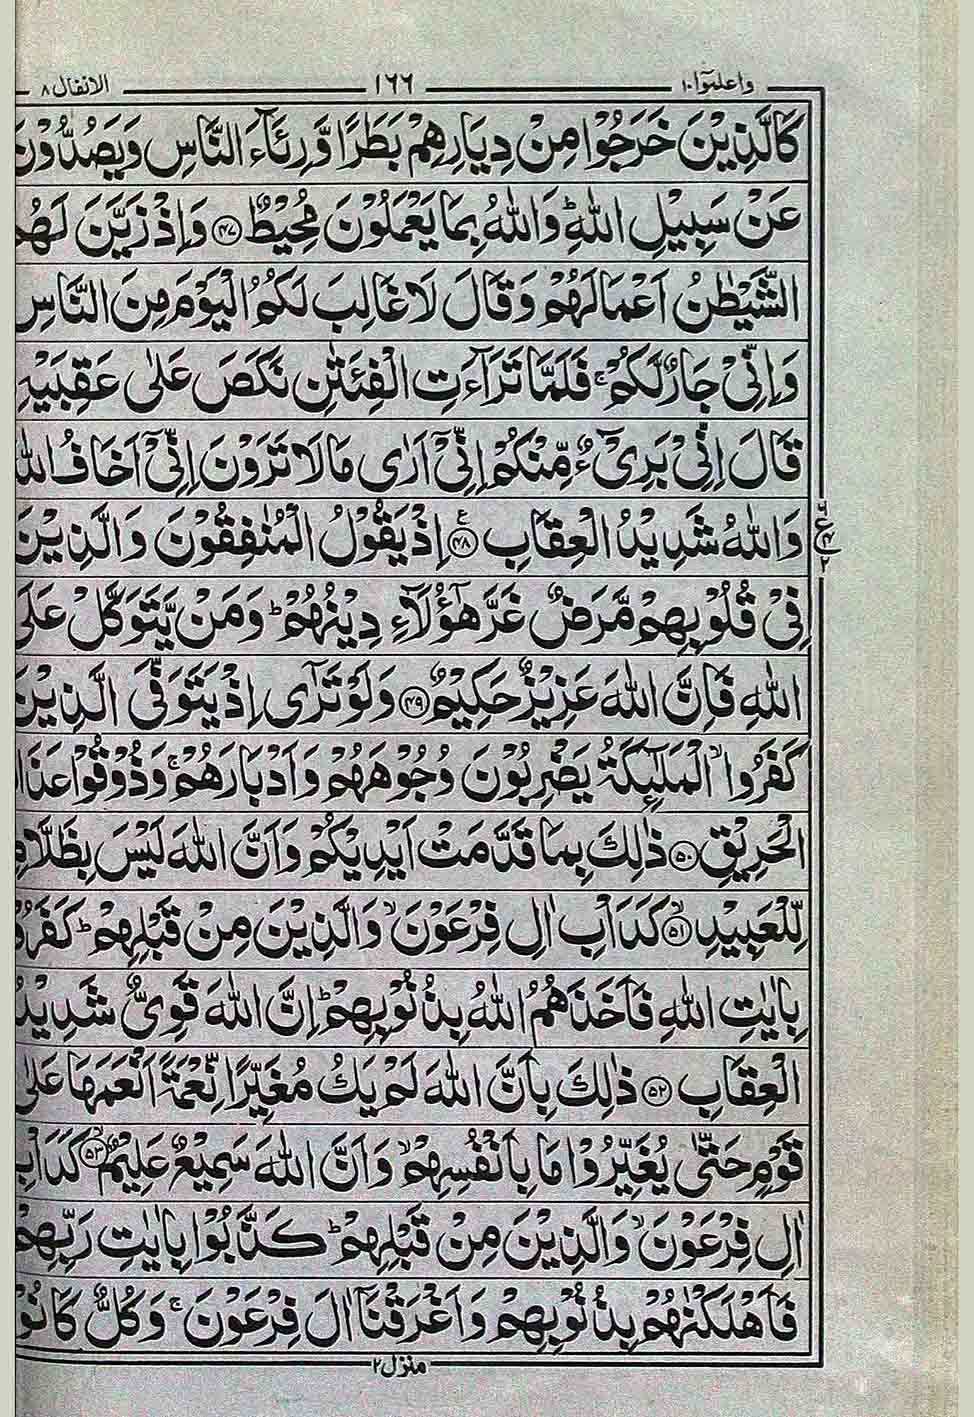 واعلموا ١٠ ١٦٦ الانفال ٨
كَالَّذِيْنَ خَرَجُوْا مِنْ دِيَارِهِمْ بَطَرًا وَّرِئَآءَ النَّاسِ وَيَصُدُّوْنَ
عَنْ سَبِيْلِ اللّٰهِ ؕ وَاللّٰهُ بِمَا يَعْمَلُوْنَ مُحِيْطٌ ﴿۴۷﴾ وَاِذْ زَيَّنَ لَهُمُ
الشَّيْطٰنُ اَعْمَالَهُمْ وَقَالَ لَا غَالِبَ لَكُمُ الْيَوْمَ مِنَ النَّاسِ
وَاِنِّيْ جَارٌ لَّكُمْ ۚ فَلَمَّا تَرَآءَتِ الْفِئَتٰنِ نَكَصَ عَلٰى عَقِبَيْهِ
قَالَ اِنِّيْ بَرِيْٓءٌ مِّنْكُمْ اِنِّيْٓ اَرٰى مَا لَا تَرَوْنَ اِنِّيْٓ اَخَافُ اللّٰهَ
وَاللّٰهُ شَدِيْدُ الْعِقَابِ ﴿۴۸﴾ اِذْ يَقُوْلُ الْمُنٰفِقُوْنَ وَالَّذِيْنَ
فِيْ قُلُوْبِهِمْ مَّرَضٌ غَرَّ هٰٓؤُلَآءِ دِيْنُهُمْ ؕ وَمَنْ يَّتَوَكَّلْ عَلَى
اللّٰهِ فَاِنَّ اللّٰهَ عَزِيْزٌ حَكِيْمٌ ﴿۴۹﴾ وَلَوْ تَرٰٓى اِذْ يَتَوَفَّى الَّذِيْنَ
كَفَرُوا ۙ الْمَلٰٓئِكَةُ يَضْرِبُوْنَ وُجُوْهَهُمْ وَاَدْبَارَهُمْ ۚ وَذُوْقُوْا عَذَابَ
الْحَرِيْقِ ﴿۵۰﴾ ذٰلِكَ بِمَا قَدَّمَتْ اَيْدِيْكُمْ وَاَنَّ اللّٰهَ لَيْسَ بِظَلَّامٍ
لِّلْعَبِيْدِ ۙ﴿۵۱﴾ كَدَاْبِ اٰلِ فِرْعَوْنَ ۙ وَالَّذِيْنَ مِنْ قَبْلِهِمْ ؕ كَفَرُوْا
بِاٰيٰتِ اللّٰهِ فَاَخَذَهُمُ اللّٰهُ بِذُنُوْبِهِمْ ؕ اِنَّ اللّٰهَ قَوِيٌّ شَدِيْدُ
الْعِقَابِ ﴿۵۲﴾ ذٰلِكَ بِاَنَّ اللّٰهَ لَمْ يَكُ مُغَيِّرًا نِّعْمَةً اَنْعَمَهَا عَلٰى
قَوْمٍ حَتّٰى يُغَيِّرُوْا مَا بِاَنْفُسِهِمْ ۙ وَاَنَّ اللّٰهَ سَمِيْعٌ عَلِيْمٌ ۙ﴿۵۳﴾ كَدَاْبِ
اٰلِ فِرْعَوْنَ ۙ وَالَّذِيْنَ مِنْ قَبْلِهِمْ ؕ كَذَّبُوْا بِاٰيٰتِ رَبِّهِمْ
فَاَهْلَكْنٰهُمْ بِذُنُوْبِهِمْ وَاَغْرَقْنَآ اٰلَ فِرْعَوْنَ ۚ وَكُلٌّ كَانُوْا
منزل ٢